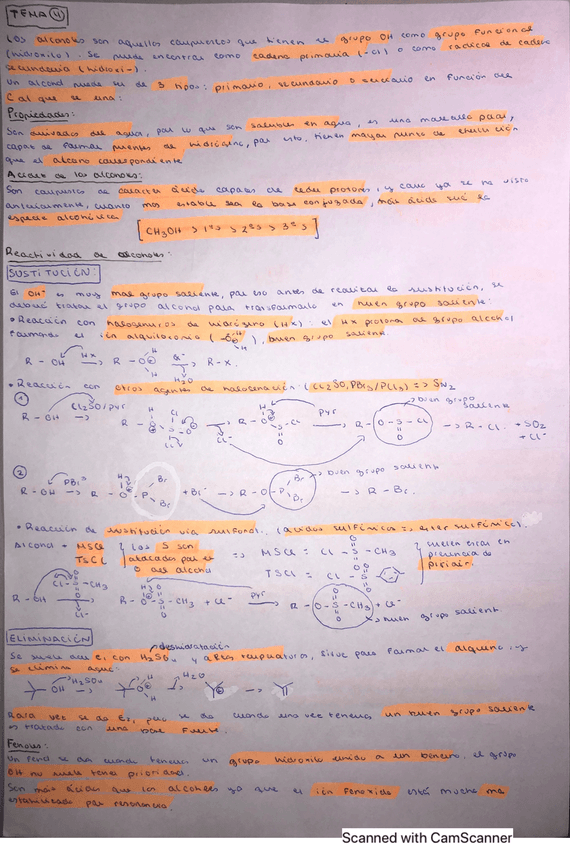 TEMA 4
Los alcoholes son aquellos compuestos que tienen el grupo OH como grupo funcional
(hidroxilo). Se puede encontrar como cadena primaria (-ol) o como radical de cadena
secundaria (hidroxi-).
Un alcohol puede ser de 3 tipos: primario, secundario o terciario en función del
C al que se una:
Propiedades:
Son derivados del agua, por lo que son solubles en agua, es una molécula polar,
capaz de formar puentes de hidrógeno, por esto, tienen mayor punto de ebullición
que el alcano correspondiente
Acidez de los alcoholes:
Son compuestos de carácter ácido capaces de ceder protones, y como ya se ha visto
anteriormente, cuanto más estable sea la base conjugada, más ácido será la
especie alcohólica
[CH3OH > 1ºs > 2ºs > 3ºs]
Reactividad de alcoholes:
SUSTITUCIÓN:
El OH⁻ es muy mal grupo saliente, por eso antes de realizar la sustitución, se
deberá tratar el grupo alcohol para transformarlo en buen grupo saliente:
• Reacción con halogenuros de hidrógeno (HX): el HX protona al grupo alcohol
formando el ión alquiloxonio, buen grupo saliente.
R - OH HX → R - O → R - X.
H2O
• Reacción con otros agentes de halogenación. (Cl2SO, PBr3/PCl3) => SN2
① buen grupo saliente
R - OH Cl2SO/pyr → R - O - S - Cl pyr → R - O - S - Cl → R - Cl + SO2 + Cl⁻
② buen grupo saliente
R - OH PBr3 → R - O - P Br Br + Br → R - O - P Br Br → R - Br.
• Reacción de sustitución vía sulfonal. (ácidos sulfínicos => éster sulfínico).
Alcohol + MSCl los S son => MSCl = Cl - S - CH3 suelen estar en
TSCl atacados por el TSCl = Cl - S presencia de
O del alcohol piridin.
R - OH Cl - S - CH3 → R - O - S - CH3 + Cl⁻ pyr → R - O - S - CH3 + Cl⁻
buen grupo salient.
ELIMINACIÓN
deshidratación
Se suele dar E1 con H2SO4 y altas temperaturas, sirve para formar el alqueno, y
se elimina agua:
OH H2SO4 → OH H2O
Rara vez se da E2, pero se da cuando una vez tenemos un buen grupo saliente
es tratado con una base fuerte.
Fenoles:
Un fenol se da cuando tenemos un grupo hidroxilo unido a un benceno. el grupo
OH no suele tener prioridad.
Son más ácidos que los alcoholes ya que el ión fenóxido está mucho más
estabilizado por resonancia.
Scanned with CamScanner